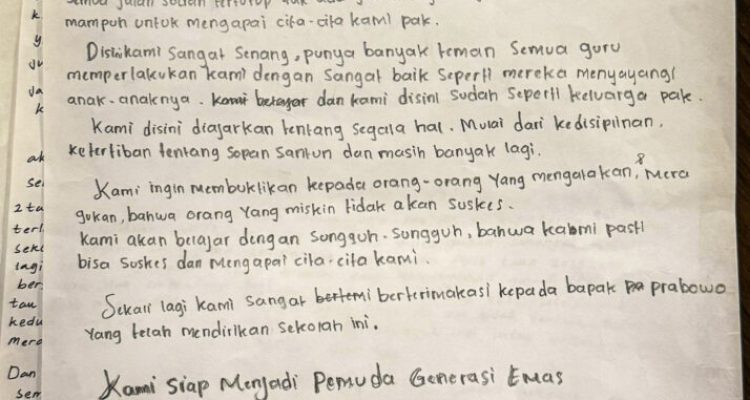 mampuh untuk mengapai cita-cita kami pak.
Disini kami sangat senang, punya banyak teman semua guru
memperlakukan kami dengan sangat baik seperti mereka menyayangi
anak-anaknya. kami belajar dan kami disini sudah seperti keluarga pak.
Kami disini diajarkan tentang segala hal. Mulai dari kedisiplinan,
ketertiban tentang sopan santun dan masih banyak lagi.
Kami ingin membuktikan kepada orang-orang yang mengatakan, & mera
gukan, bahwa orang yang miskin tidak akan suskes.
Kami akan belajar dengan sungguh-sungguh, bahwa kabmi pasti
bisa suskes dan mengapai cita-cita kami.
Sekali lagi kami sangat bertemi berterimakasi kepada bapak pa prabowo
yang telah mendirikan sekolah ini.
Kami siap Menjadi Pemuda Generasi Emas
k
y
ju
ja
k
ak
se
2 ta
terl
seko
lagi
ber
tau
kedu
mera
Dan
sem